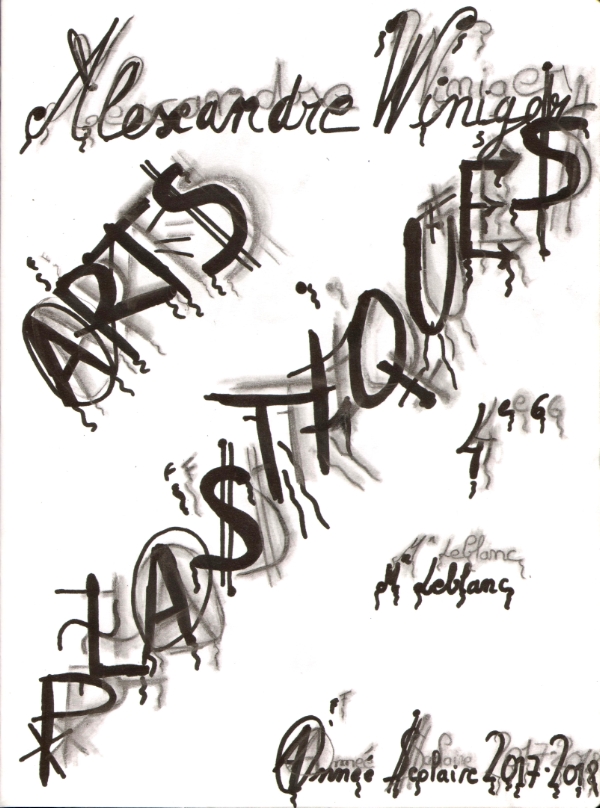 Alexandre Winiger
ARTS
PLASTIQUES
4e G
Mr Leblanc
Année Scolaire 2017-2018